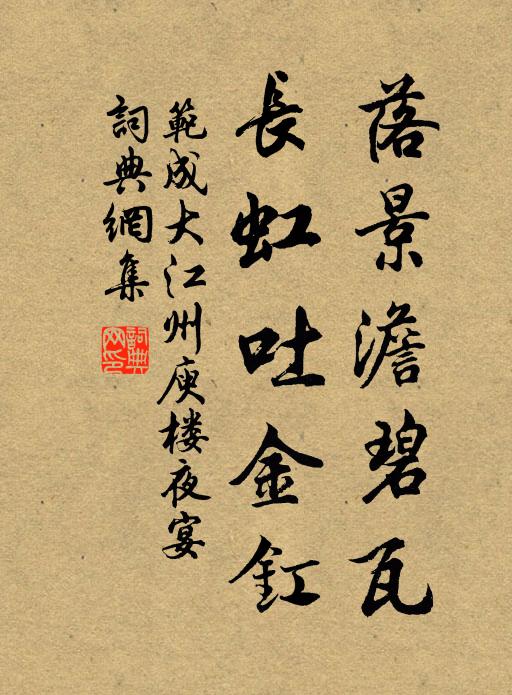 落景澹碧瓦
長虹吐金釭
範成大江州庾楼夜宴
詞典網集
詞典网印